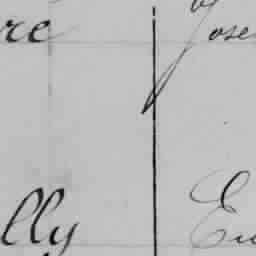 re Jose
lly Eu